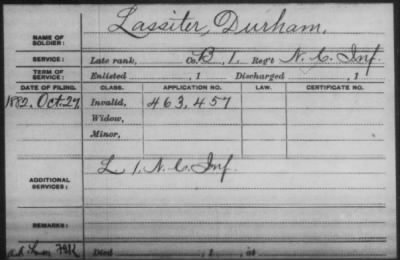 NAME OF SOLDIER: Lassiter, Durham.
SERVICE: Late rank, Co. B, 1 Reg't N. C. Inf.
TERM OF SERVICE: Enlisted , 1 Discharged , 1
DATE OF FILING. CLASS. APPLICATION NO. LAW. CERTIFICATE NO.
1882. Oct. 27, Invalid, 463,457
Widow,
Minor,
ADDITIONAL SERVICES: L 1, N. C. Inf.
REMARKS:
Died , 1 , at